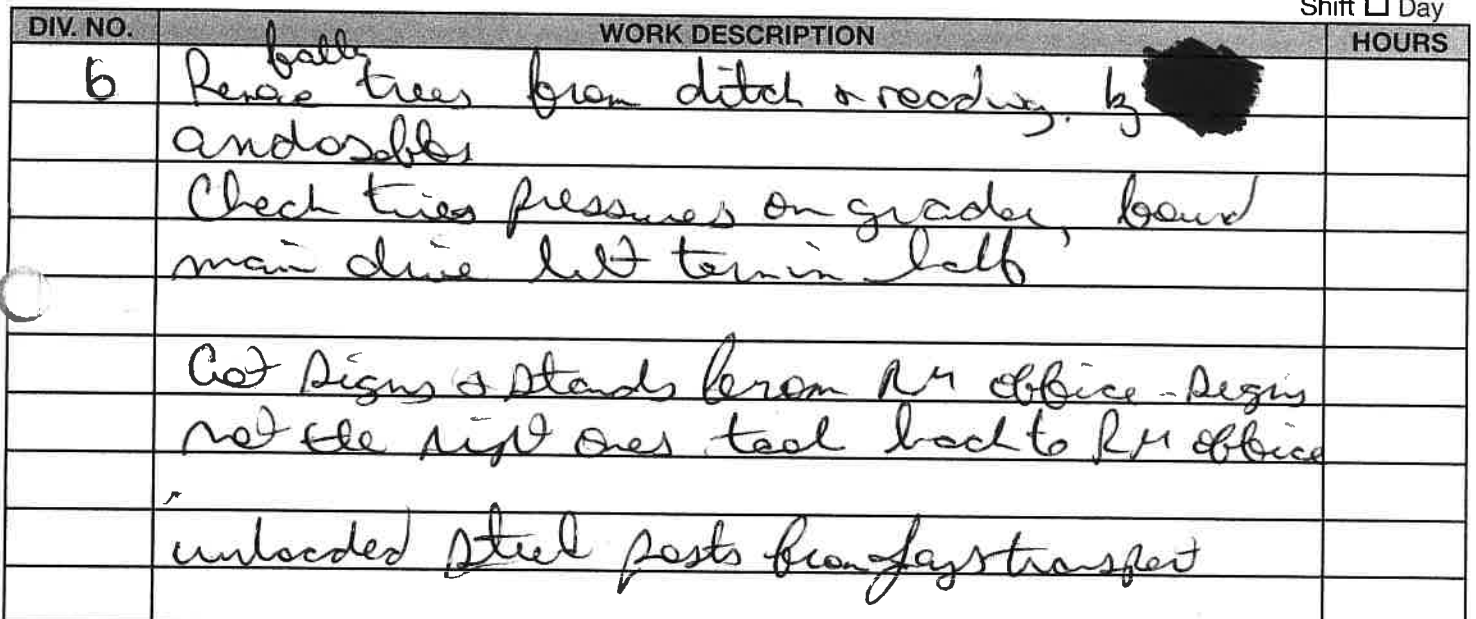 Shift ☐ Day
DIV. NO. WORK DESCRIPTION HOURS
6 Remove fallen trees from ditch & roadway. by
and
Check tires pressures on grader, found
main drive belt torn in half
Got signs & stands from RM office - signs
not the right ones took back to RM office
unloaded steel posts from Jays transport